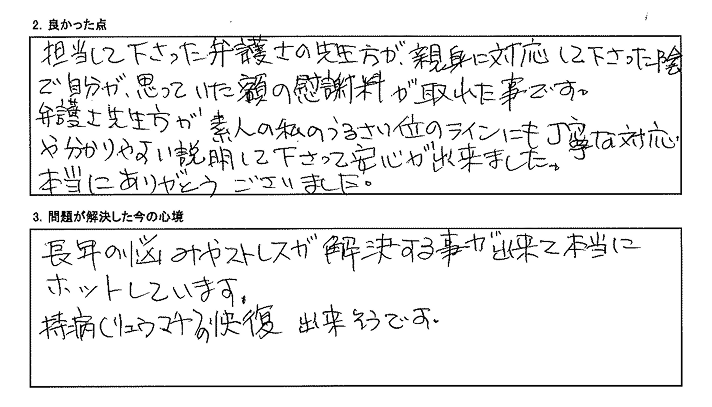 2. 良かった点
担当して下さった弁護士の先生方が、親身に対応して下さった陰
で自分が、思っていた額の慰謝料が取れた事です。
弁護士先生方が素人の私のうるさい位のラインにも丁寧な対応
や分かりやよい説明して下さって安心が出来ました。
本当にありがとうございました。
3. 問題が解決した今の心境
長年の悩みやストレスが解決する事が出来て本当に
ホットしています。
持病(リュウマチ)の快復出来そうです。